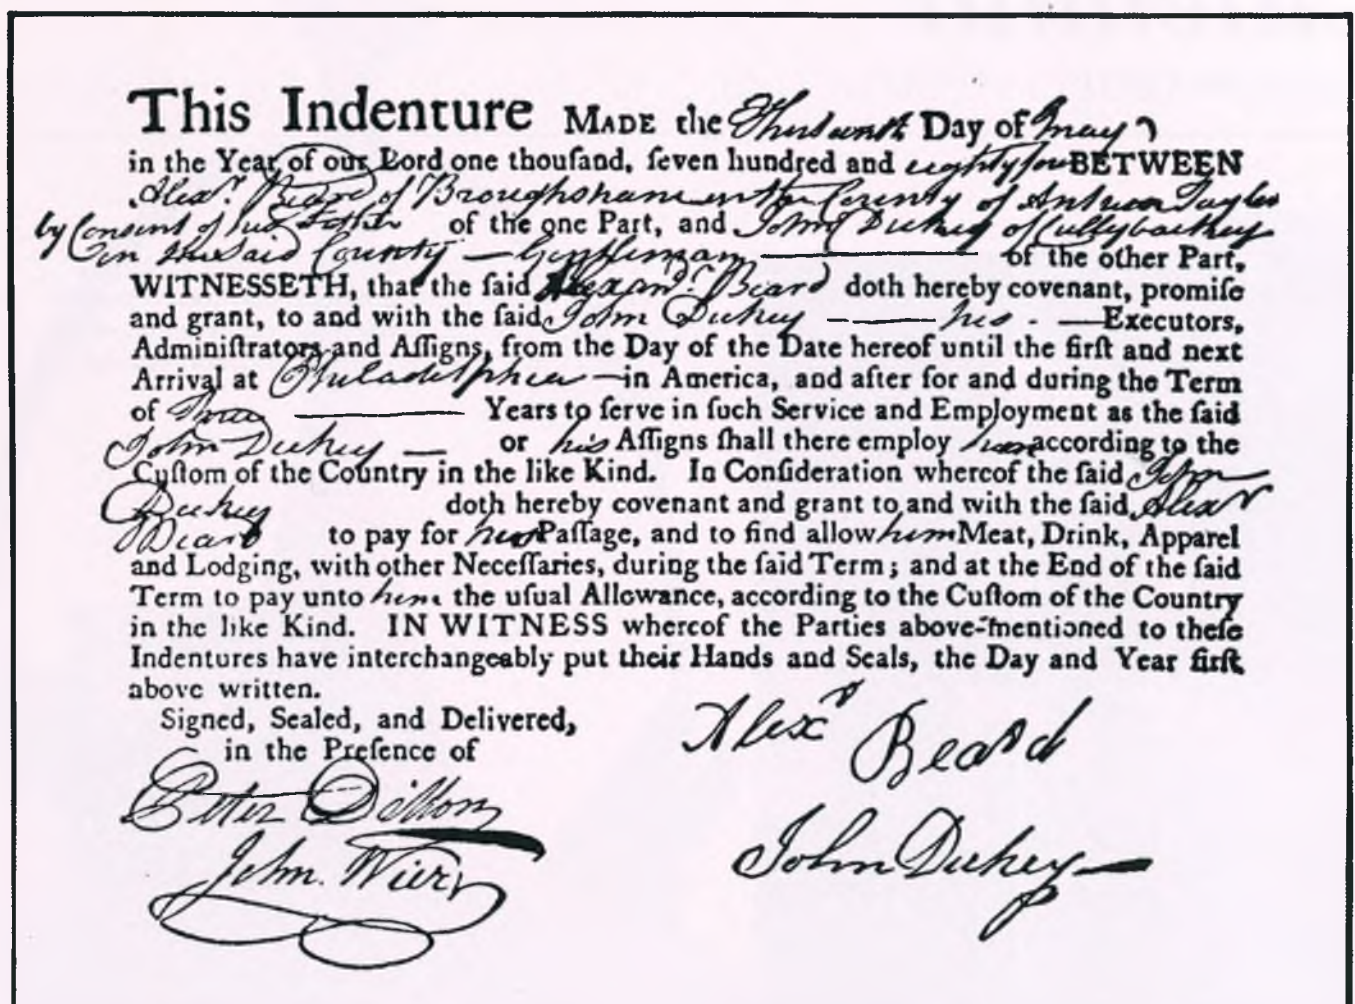 This Indenture MADE the Thirteenth Day of May
in the Year of our Lord one thouſand, ſeven hundred and eighty four BETWEEN
Alexr. Beard of Broughshane in the County of Antrim Taylor
by Consent of his Father of the one Part, and John Dickey of Cullybackey
in the Said County — Gentleman — of the other Part,
WITNESSETH, that the ſaid Alexandr. Beard doth hereby covenant, promiſe
and grant, to and with the ſaid John Dickey — his — Executors,
Adminiſtrators and Aſſigns, from the Day of the Date hereof until the firſt and next
Arrival at Philadelphia — in America, and after for and during the Term
of Three — Years to ſerve in ſuch Service and Employment as the ſaid
John Dickey — or his Aſſigns ſhall there employ him according to the
Cuſtom of the Country in the like Kind. In Conſideration whereof the ſaid John
Dickey doth hereby covenant and grant to, and with the ſaid Alexr
Beard to pay for his Paſſage, and to find allow him Meat, Drink, Apparel
and Lodging, with other Neceſſaries, during the ſaid Term; and at the End of the ſaid
Term to pay unto him the uſual Allowance, according to the Cuſtom of the Country
in the like Kind. IN WITNESS whereof the Parties above-mentioned to theſe
Indentures have interchangeably put their Hands and Seals, the Day and Year firſt
above written.
Signed, Sealed, and Delivered,
in the Preſence of
Alexr Beard
Peter Dillon
John Dickey
John Wier